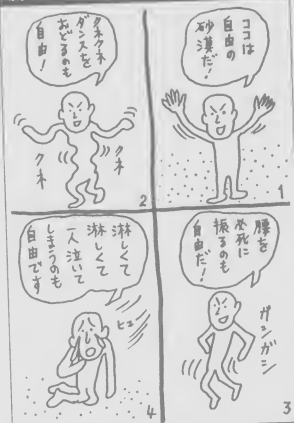 ココは
自由の
砂漠だ!
1
クネクネ
ダンスを
おどるのも
自由!
クネ
クネ
2
腰を
必死に
振るのも
自由だ!
ガシガシ
3
淋しくて
淋しくて
一人泣いて
しまうのも
自由です
ヒュー
4